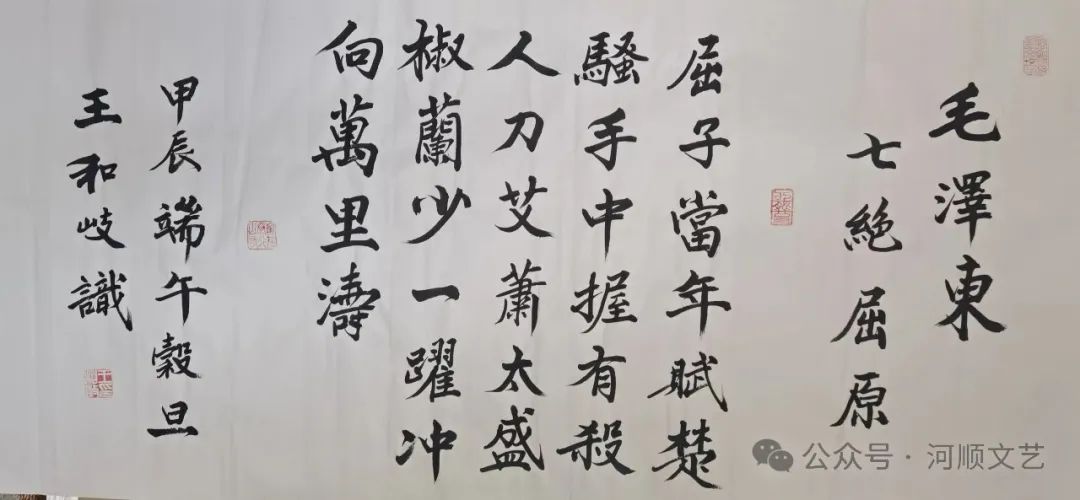 毛澤東
七絶屈原
屈子當年賦楚
騷手中握有殺
人刀艾蕭太盛
椒蘭少一躍冲
向萬里濤
甲辰端午穀旦
王和岐識
公众号·河顺文艺